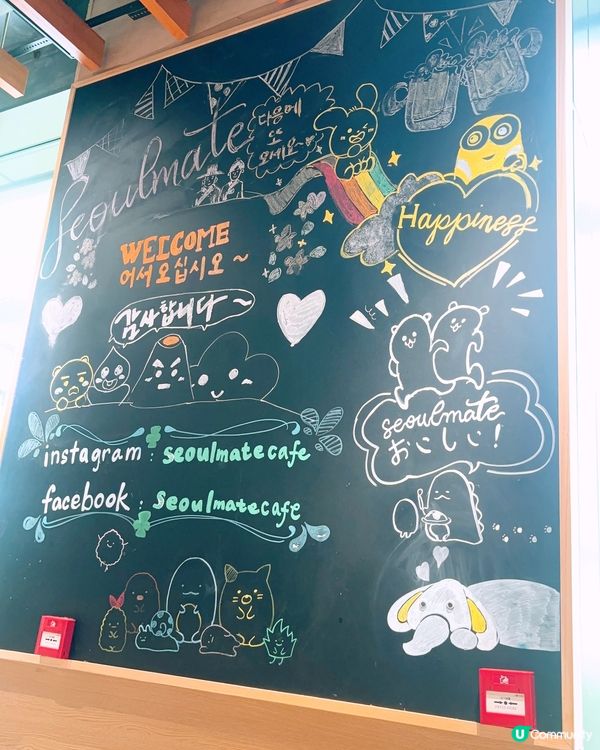 Seoulmate
다음에
또
오세요~
Happiness
WELCOME
어서오십시오~
감사합니다~
seoulmate
おいしい!
instagram : seoulmatecafe
facebook : seoulmatecafe
U Community